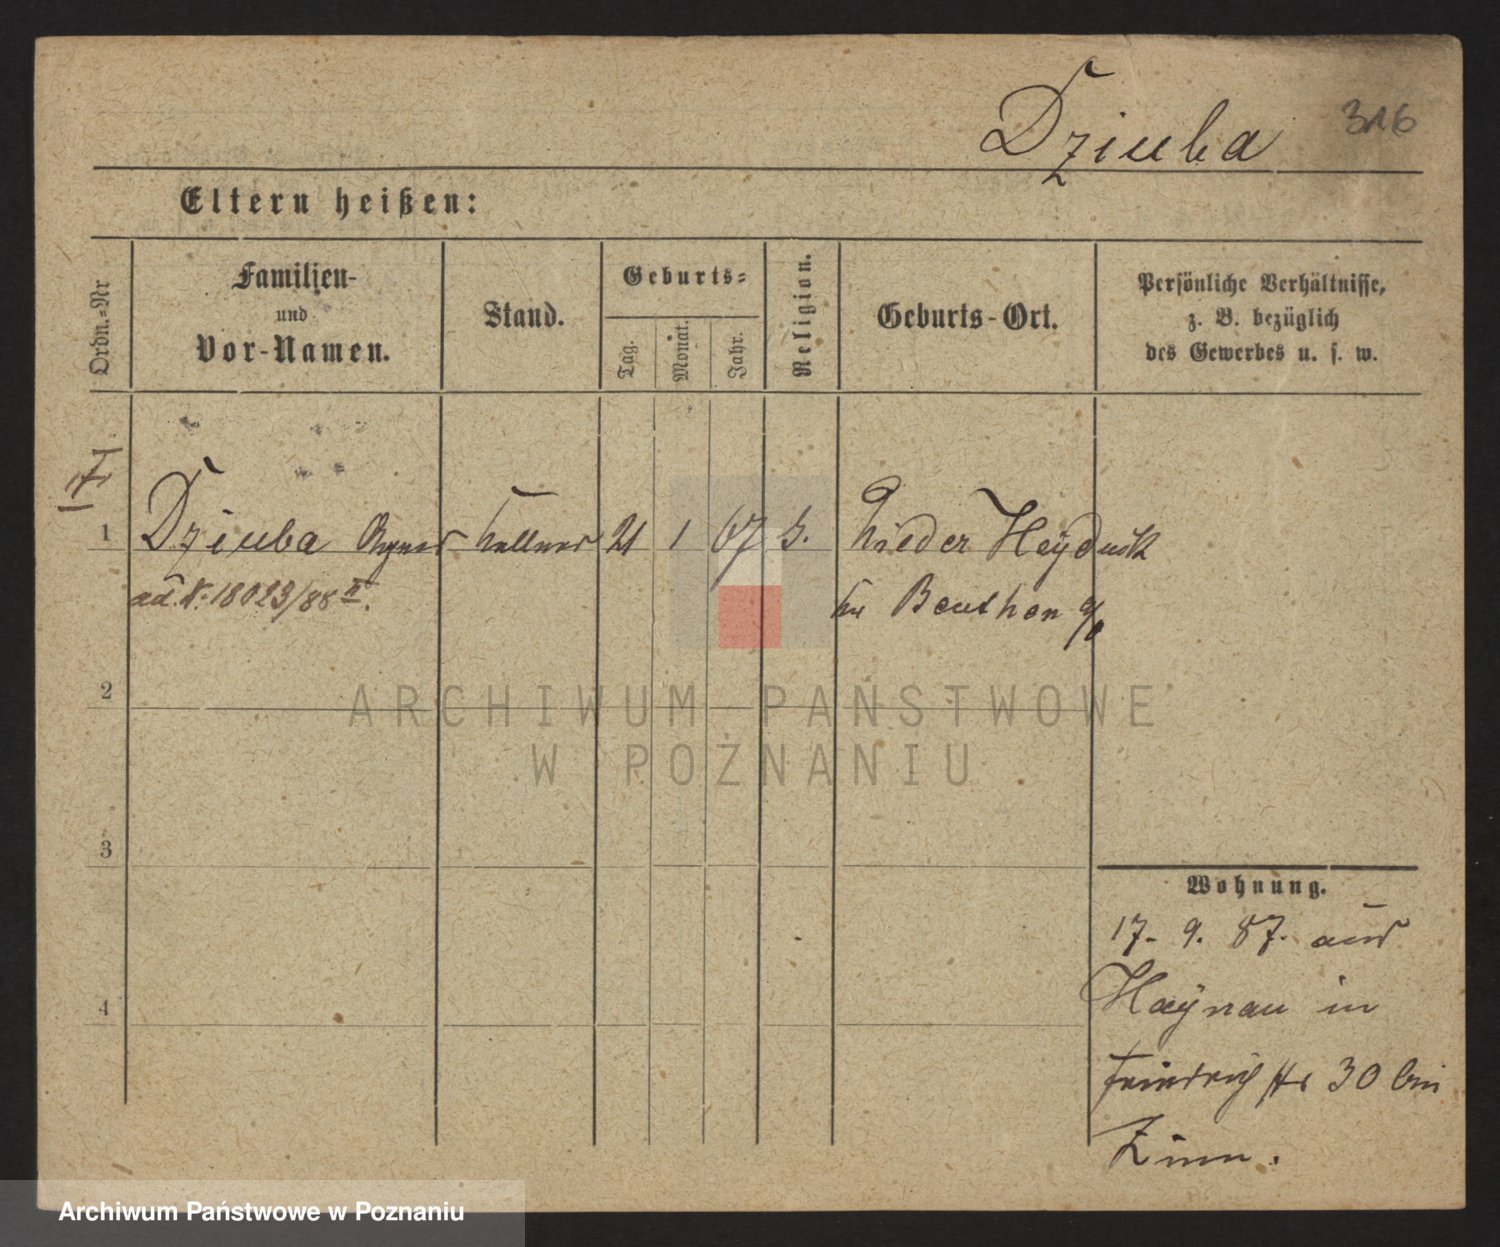 316
Dziuba
Eltern heißen:
Ordn.-Nr
Familien-
und
Vor-Namen.
Stand.
Geburts-
Tag.
Monat.
Jahr.
Religion.
Geburts-Ort.
Persönliche Verhältnisse,
z. B. bezüglich
des Gewerbes u. s. w.
1
Dziuba Kellner 21 1 67 k. Nieder Heyduck
ad. N. 18023/88 II.
Beuthen o/
2
ARCHIWUM PAŃSTWOWE
W POZNANIU
3
4
Wohnung.
17. 9. 87. aus
Haynau in
Friedrich str 30 bei
Zinn.
Archiwum Państwowe w Poznaniu